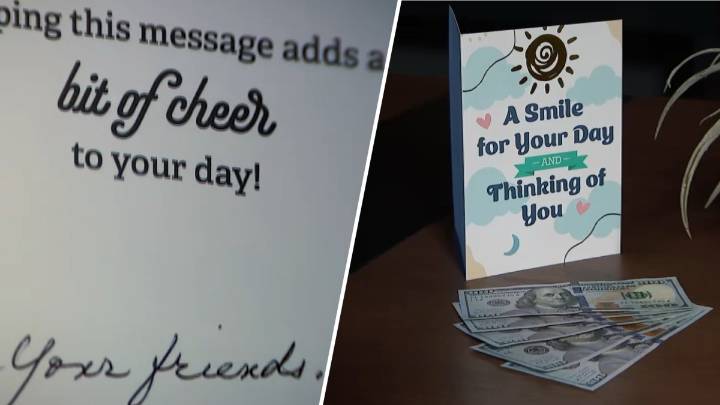 ping this message adds a
bit of cheer
to your day!
Your friends.
A Smile
for Your Day
AND
Thinking of
You